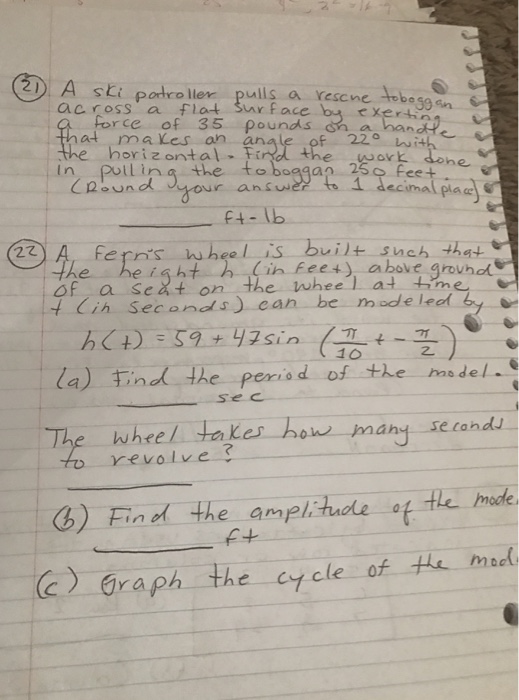 (21) A ski patroller pulls a rescue toboggan
across a flat surface by exerting
a force of 35 pounds on a handle
that makes an angle of 22° with
the horizontal. Find the work done
in pulling the toboggan 250 feet.
(Round your answer to 1 decimal place)
ft-lb
(22) A Ferris wheel is built such that
the height h (in feet) above ground
of a seat on the wheel at time
t (in seconds) can be modeled by
h(t) = 59 + 47 sin (π/10 t - π/2)
(a) Find the period of the model.
sec
The wheel takes how many seconds
to revolve?
(b) Find the amplitude of the mode
ft
(c) Graph the cycle of the mod